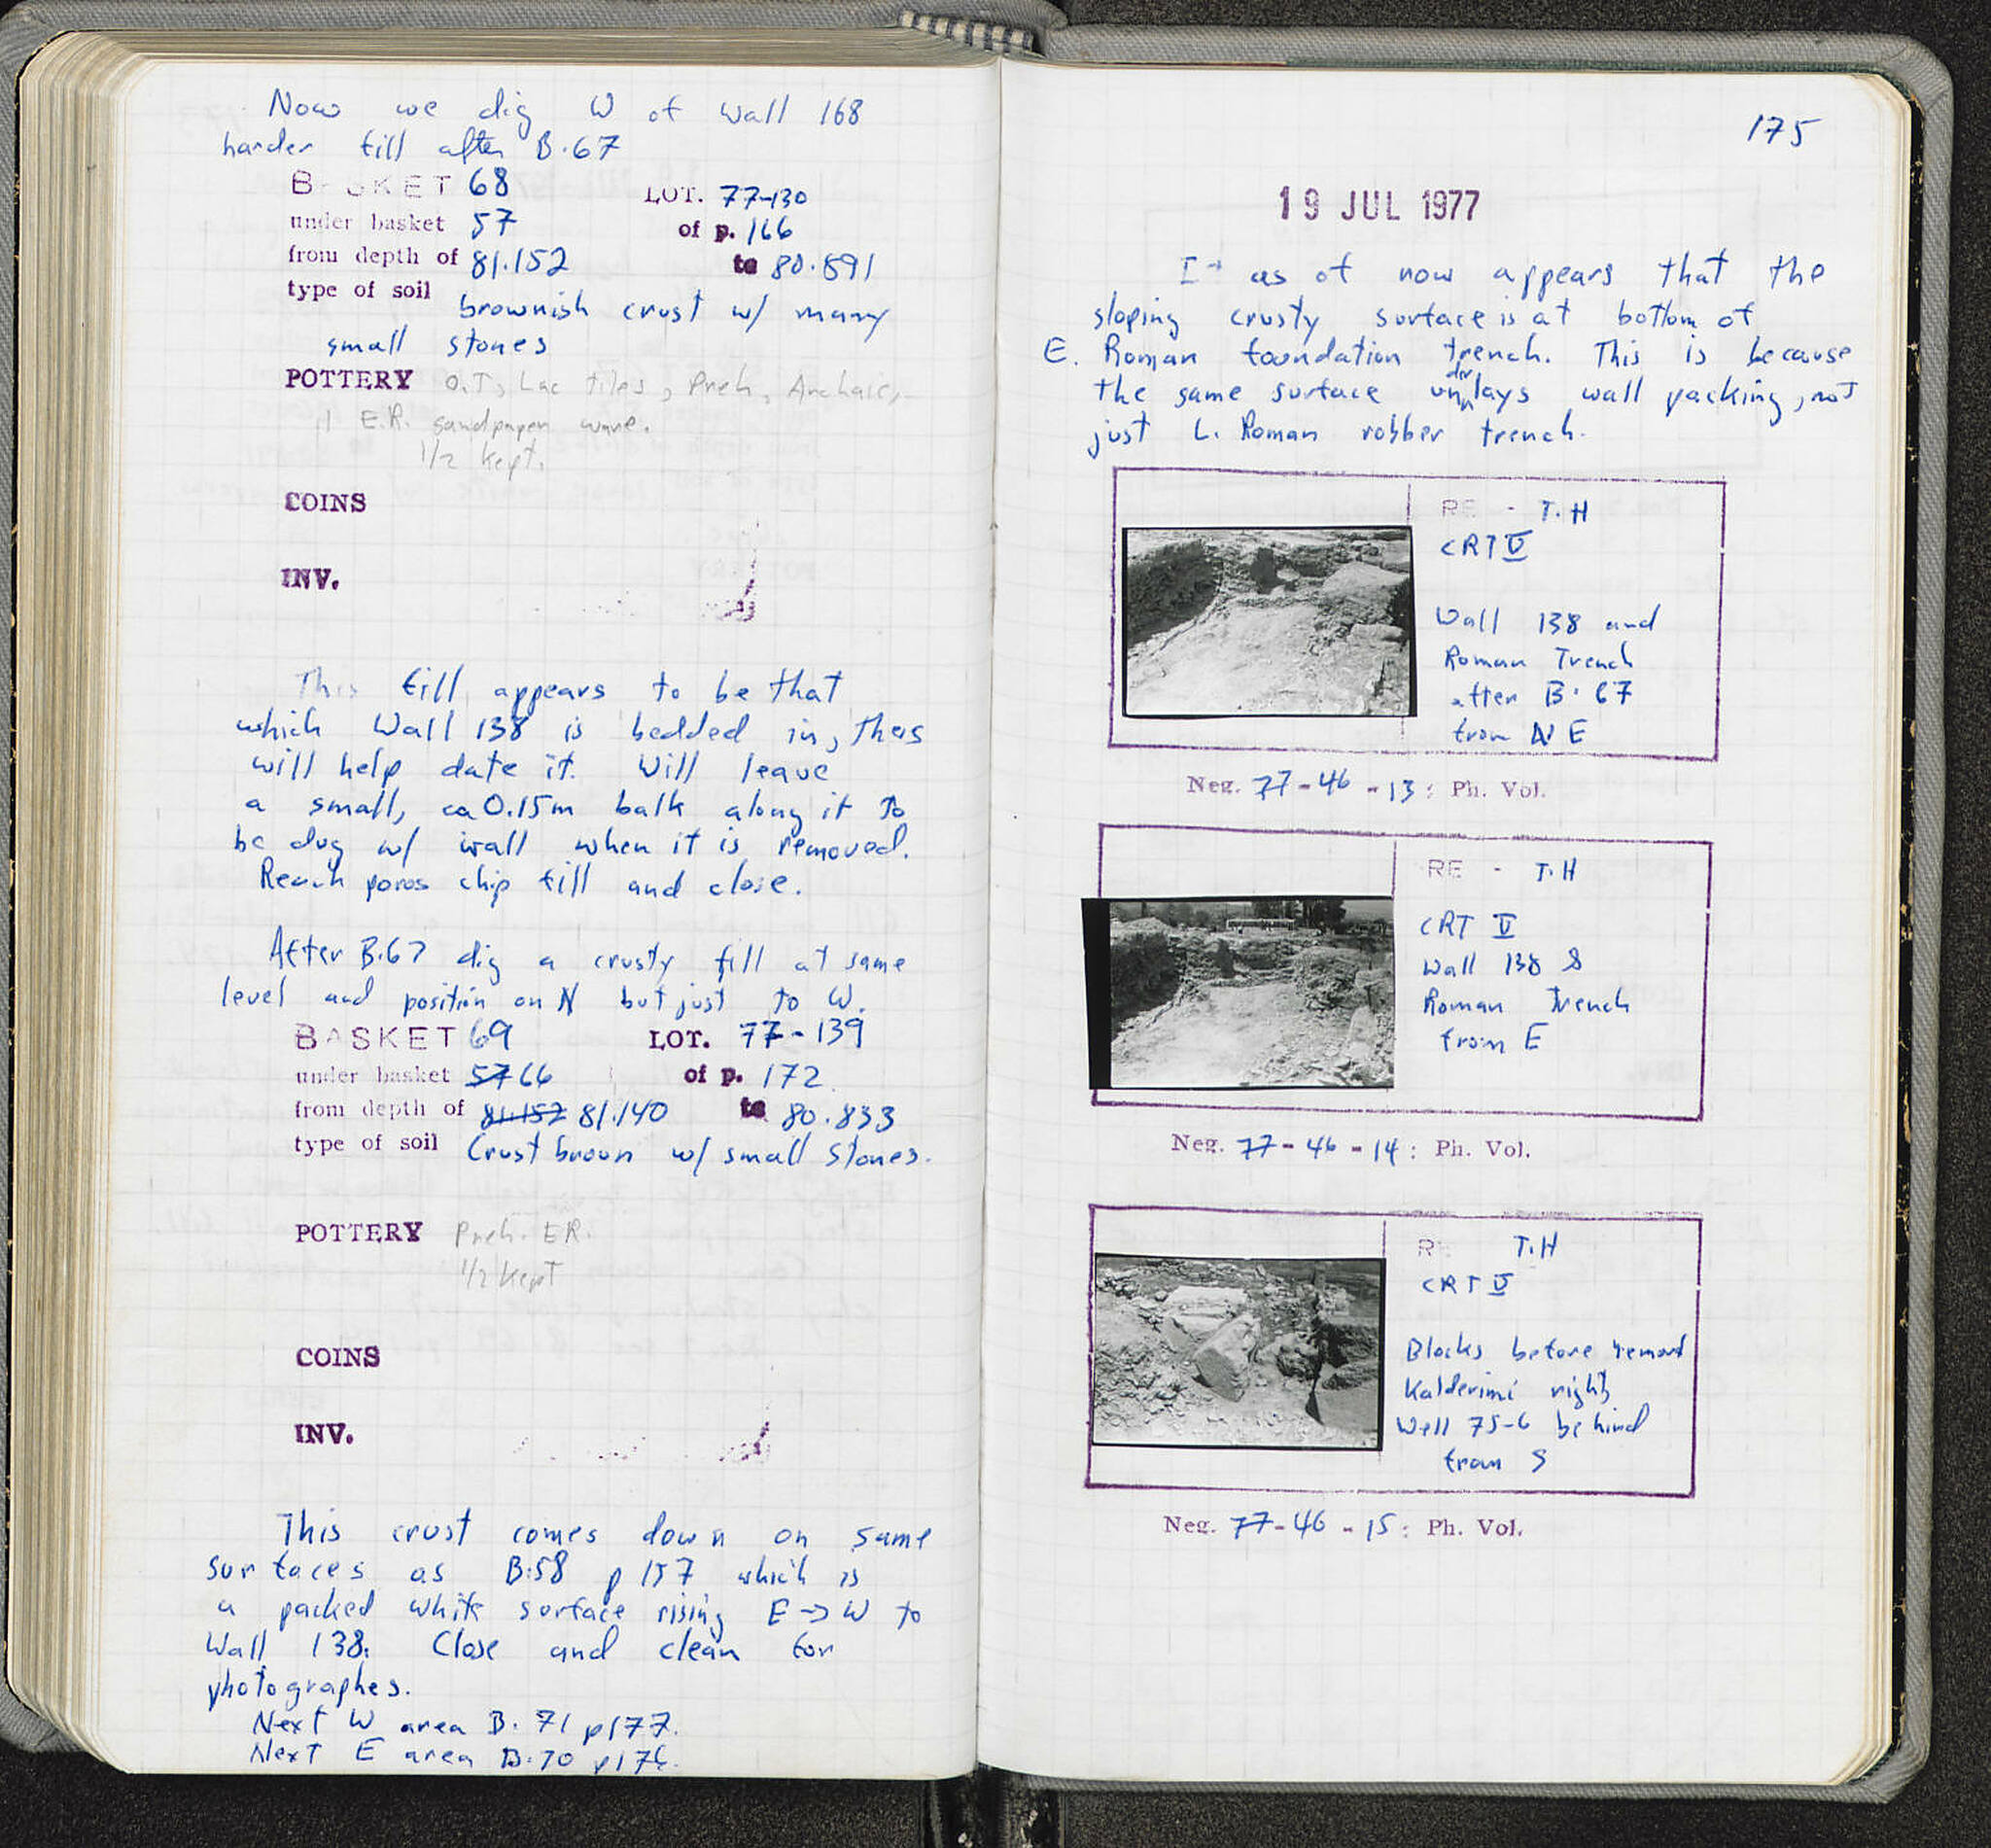 Now we dig W of Wall 168
harder fill after B.67
BASKET 68 LOT. 77-130
under basket 57 of p. 166
from depth of 81.152 to 80.891
type of soil brownish crust w/ many
small stones
POTTERY O.T, Lac tiles, Preh, Archaic,
1 E.R. sandpaper ware.
1/2 kept.
COINS
INV.
This fill appears to be that
which Wall 138 is bedded in, thus
will help date it. Will leave
a small, ca 0.15m balk along it to
be dug w/ wall when it is removed.
Reach poros chip fill and close.
After B.67 dig a crusty fill at same
level and position on N but just to W.
BASKET 69 LOT. 77-139
under basket 57 66 of p. 172
from depth of 81.152 81.140 to 80.833
type of soil Crust brown w/ small stones.
POTTERY Preh. ER.
1/2 kept
COINS
INV.
This crust comes down on same
surfaces as B:58 p 157 which is
a packed white surface rising E→W to
Wall 138. Close and clean for
photographes.
Next W area B. 71 p177.
Next E area B.70 p176.
175
19 JUL 1977
It as of now appears that the
sloping crusty surface is at bottom of
E. Roman foundation trench. This is because
the same surface underlays wall packing, not
just L. Roman robber trench.
RE - T.H
CRT V
Wall 138 and
Roman Trench
after B. 67
from NE
Neg. 77-46-13: Ph. Vol.
RE - T.H
CRT V
Wall 138 &
Roman Trench
from E
Neg. 77-46-14: Ph. Vol.
RE T.H
CRT V
Blocks before removal
Kalderimi right,
Well 75-6 behind
from S
Neg. 77-46-15: Ph. Vol.